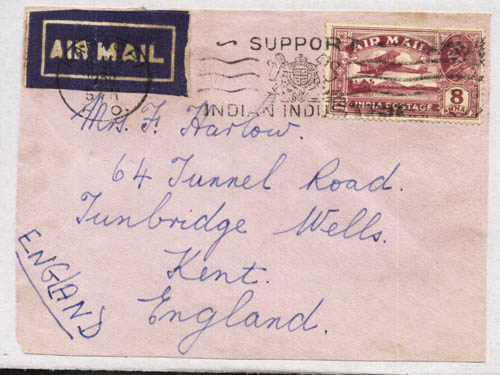 AIR MAIL
SUPPOR
INDIAN INDU
AIR MAIL
INDIA POSTAGE
8
Mrs. F. Harlow.
64 Tunnel Road.
Tunbridge Wells.
Kent.
England.
ENGLAND